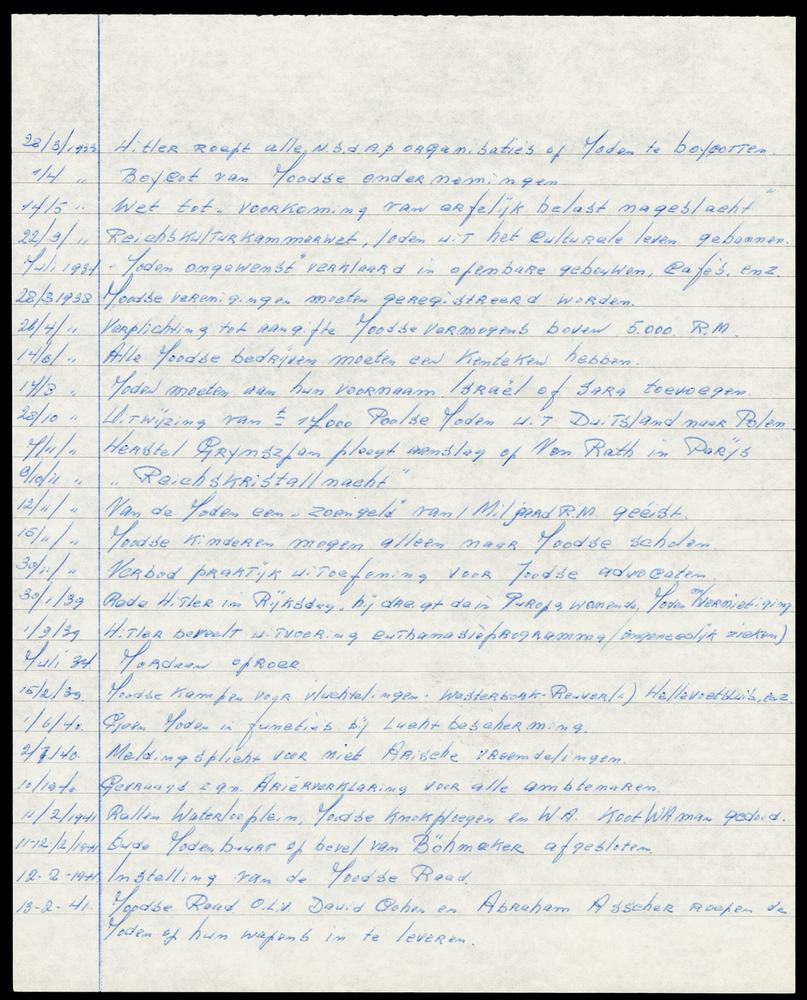 28/3/1933 Hitler roept alle N.S.d.A.P organisaties op Joden te boycotten.
1/4 " Boycot van Joodse ondernemingen
14/5 " Wet tot "voorkoming van erfelijk belast nageslacht"
22/9/ " Reichskulturkammerwet, Joden uit het Culturele leven gebannen.
Juli 1934 "Joden ongewenst" verklaard in openbare gebouwen, Cafés, enz
28/3 1938 Joodse verenigingen moeten geregistreerd worden.
26/4/ " Verplichting tot aangifte Joodse vermogens boven 5.000 R.M.
14/6/ " Alle Joodse bedrijven moeten een Kenteken hebben.
17/8 " Joden moeten aan hun voornaam Israël of Sara toevoegen.
28/10 " Uitwijzing van ± 17.000 Poolse Joden uit Duitsland naar Polen
7/11/ " Herstel Grynszpan pleegt aanslag op Von Rath in Parijs
9/10/11 " "Reichskristallnacht"
12/11/ " Van de Joden een "zoengeld" van 1 Miljaard R.M. geëist.
15/11/ " Joodse Kinderen mogen alleen naar Joodse scholen
30/11/ " Verbod praktijk uitoefening voor Joodse advocaten
30/1/39 Rede Hitler in Rijksdag, hij dreigt de in Europa wonende Joden m/Vernietiging
1/9/39 Hitler beveelt uitvoering euthanasieprogramma (ongeneeslijk zieken)
Juli 34 Jordaan oproer
15/2/39 Joodse Kampen voor vluchtelingen. Westerbork-Reuver(L) Hellevoetsluis, enz.
1/6/40. Geen Joden in functies bij Luchtbescherming.
2/7/40. Meldingsplicht voor niet Arische vreemdelingen.
10/1940 Gevraagd zgn. Ariërverklaring voor alle ambtenaren.
11/2/1941 Rellen Waterlooplein, Joodse Knokploegen en W.A. Koot WA man gedood.
11-12/2/1941 Oude Jodenbuurt op bevel van Böhmcker afgesloten.
12-2-1941 Instelling van de Joodse Raad.
13-2-41. Joodse Raad O.L.V. David Cohen en Abraham Asscher roepen de
Joden op hun wapens in te leveren.